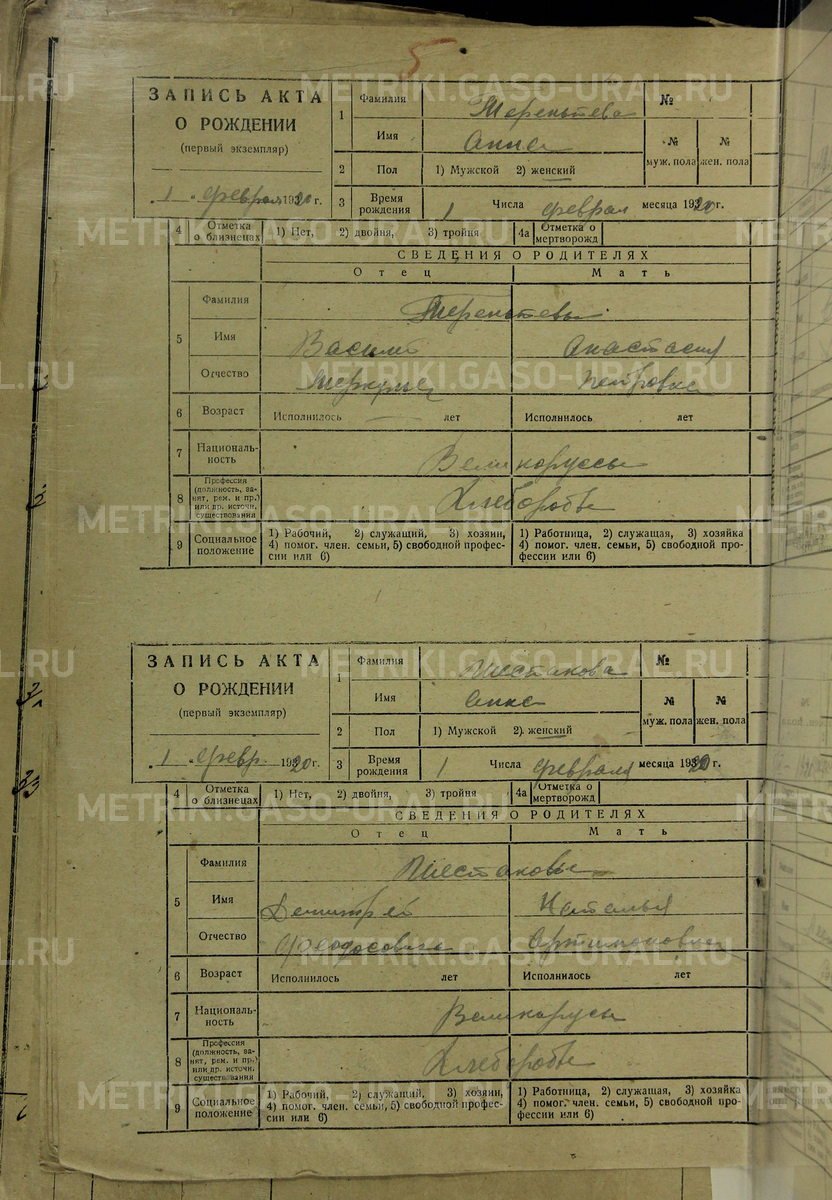 5
ЗАПИСЬ АКТА
О РОЖДЕНИИ
(первый экземпляр)
1 Февраля 1920 г.
1 Фамилия Терентьева №
Имя Анна № муж. пола № жен. пола
2 Пол 1) Мужской 2) женский
3 Время рождения 1 Числа февраля месяца 1920 г.
4 Отметка о близнецах 1) Нет, 2) двойня, 3) тройня 4а Отметка о мертворожд
СВЕДЕНИЯ О РОДИТЕЛЯХ
Отец Мать
5 Фамилия Терентьевы
Имя Василий Анастасия
Отчество Меркулье Петровна
6 Возраст Исполнилось лет Исполнилось лет
7 Националь-
ность Великоруссы
8 Профессия
(должность, за-
нят, рем. и пр.)
или др. источн.
существования Хлеборобы
9 Социальное
положение 1) Рабочий, 2) служащий, 3) хозяин,
4) помог. член. семьи, 5) свободной профес-
сии или 6)
1) Работница, 2) служащая, 3) хозяйка
4) помог. член. семьи, 5) свободной про-
фессии или 6)
ЗАПИСЬ АКТА
О РОЖДЕНИИ
(первый экземпляр)
1 Февр. 1920 г.
1 Фамилия Шестакова №
Имя Анна № муж. пола № жен. пола
2 Пол 1) Мужской 2) женский
3 Время рождения 1 Числа февраля месяца 1920 г.
4 Отметка о близнецах 1) Нет, 2) двойня, 3) тройня 4а Отметка о мертворожд
СВЕДЕНИЯ О РОДИТЕЛЯХ
Отец Мать
5 Фамилия Шестаковы
Имя Дмитрей Наталья
Отчество Феодосович Артимоновна
6 Возраст Исполнилось лет Исполнилось лет
7 Националь-
ность Великорусы
8 Профессия
(должность, за-
нят, рем. и пр.)
или др. источн.
существования Хлеборобы
9 Социальное
положение 1) Рабочий, 2) служащий, 3) хозяин,
4) помог. член. семьи, 5) свободной профес-
сии или 6)
1) Работница, 2) служащая, 3) хозяйка
4) помог. член. семьи, 5) свободной про-
фессии или 6)
METRIKI.GASO-URAL.RU